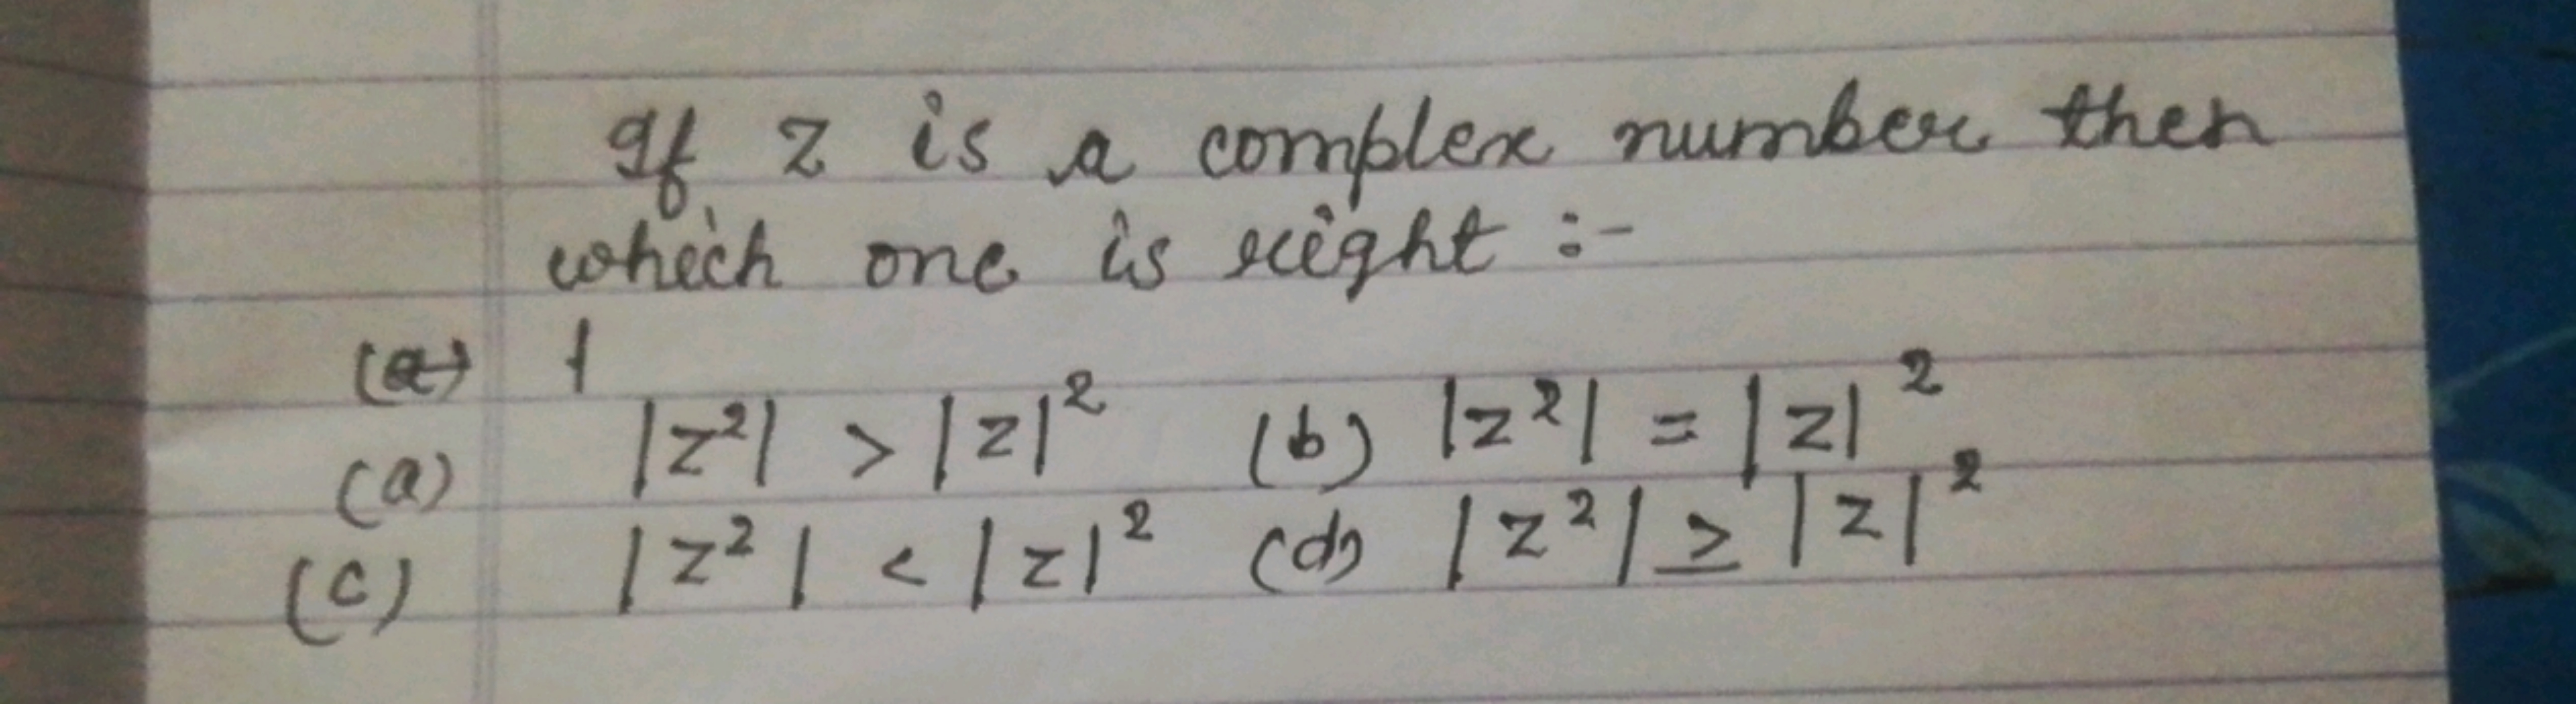 If z is a complex number then
which one is right :-
(a)
(a) |z²| > |z|² (b) |z²| = |z|²
(c) |z²| < |z|² (d) |z²| ≥ |z|²